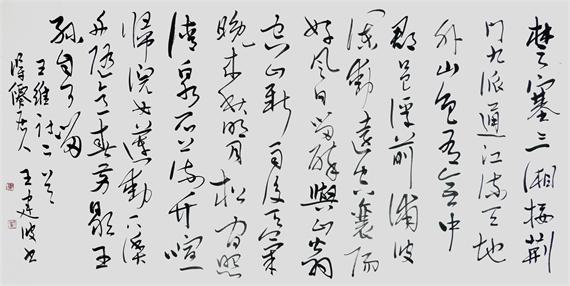 楚塞三湘接荆
门九派通江流天地
外山色有无中
郡邑浮前浦波
澜动远空襄阳
好风日留醉與山翁
空山新雨後天气
晚来秋明月松间照
清泉石上流竹喧
归浣女莲动下渔
舟随意春芳歇王
孙自可留
王维诗二首
居人王建波书